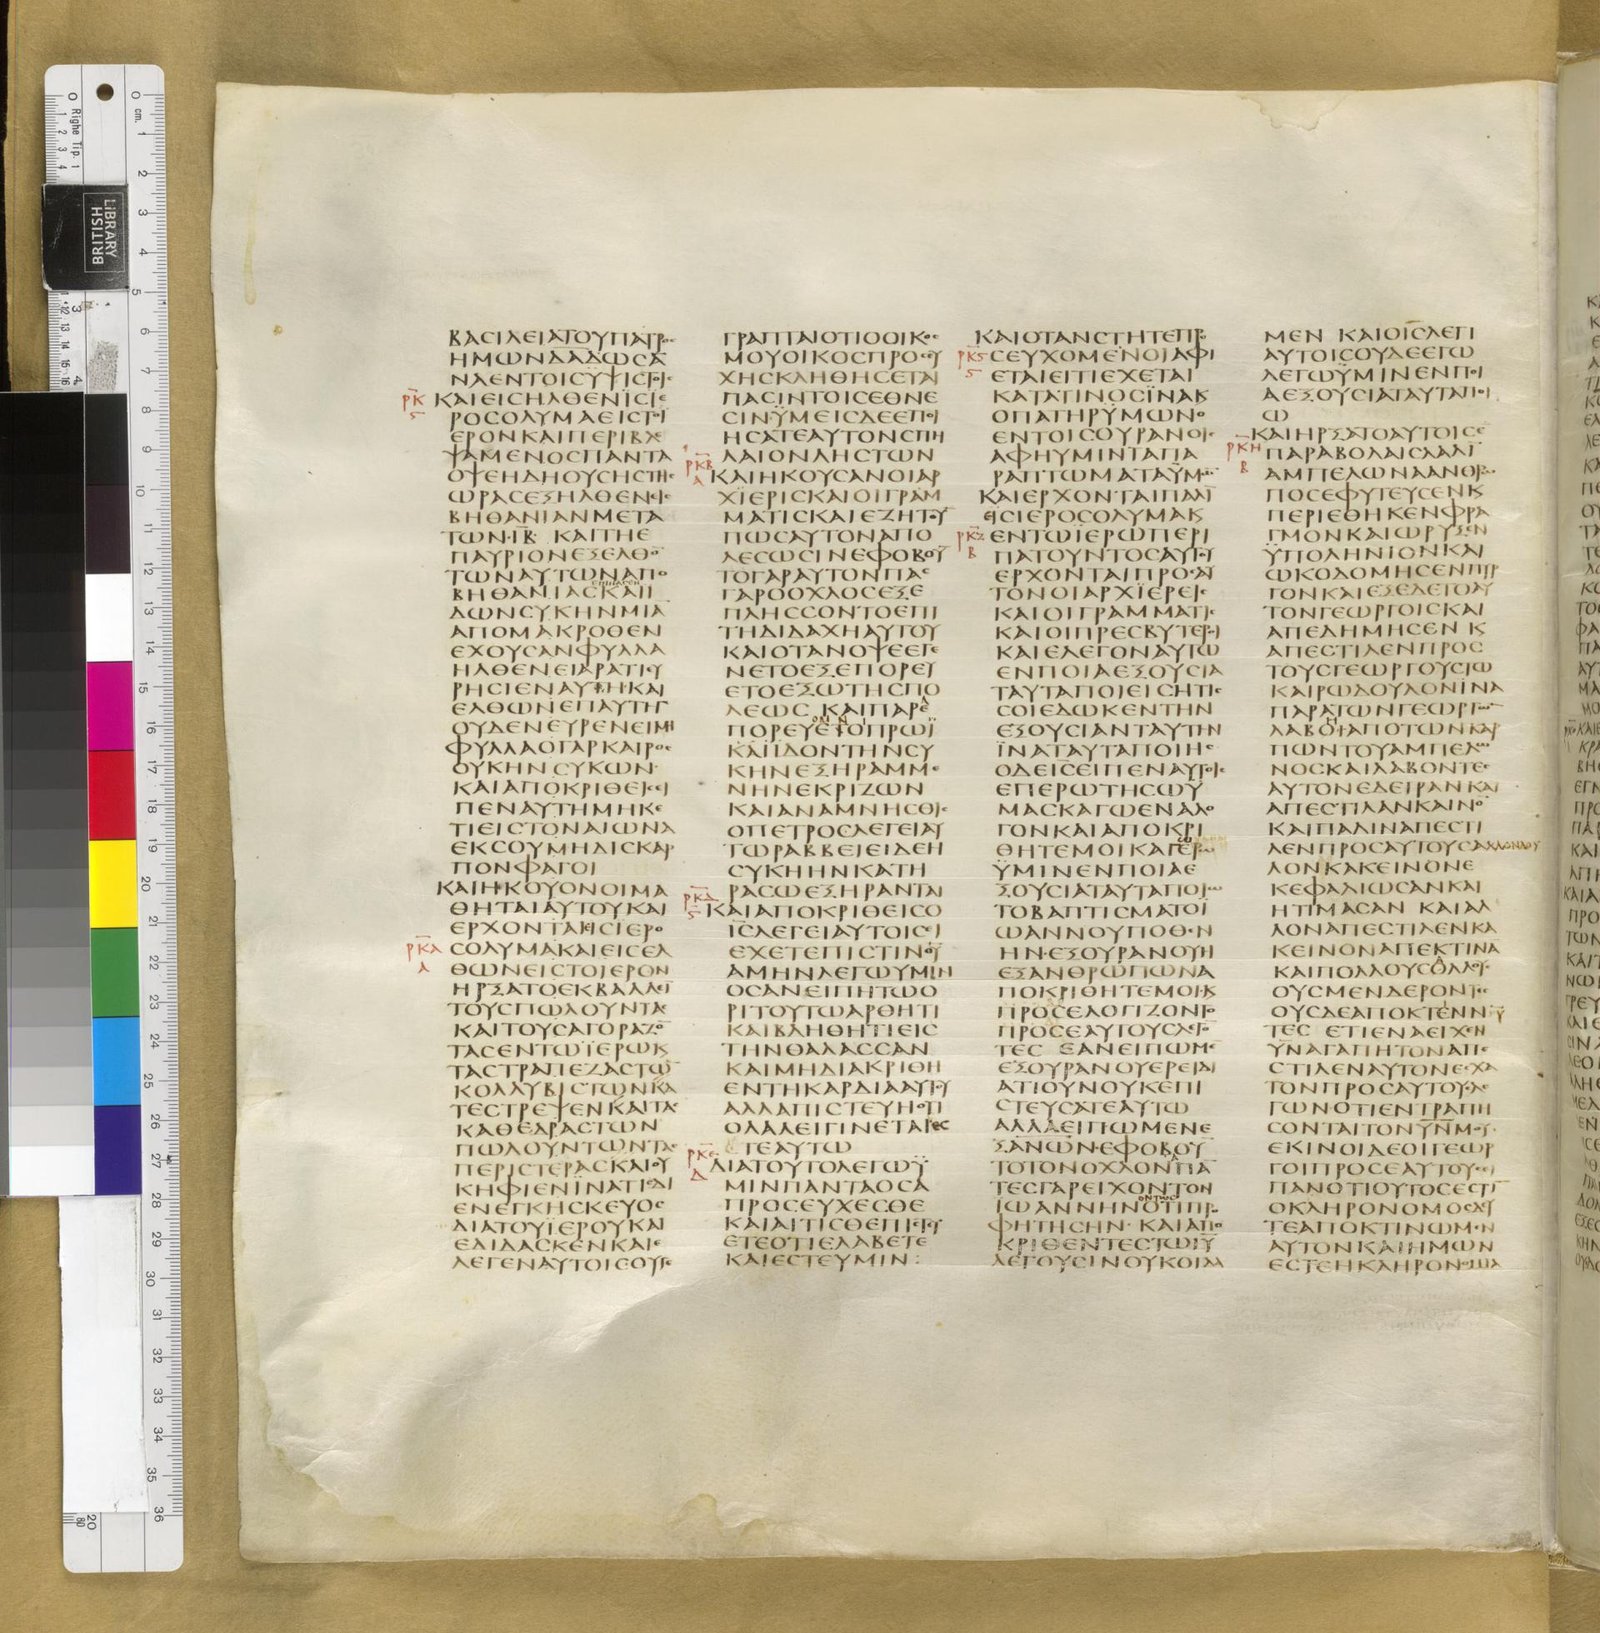 ΒΑϹΙΛΕΙΑΤΟΥΠΑΤΡΟϹ
ΗΜΩΝΔΑΔΩϹΑ
ΝΑΕΝΤΟΙϹΫΨΙϹΤΟΙϹ
ΚΑΙΕΙϹΗΛΘΕΝΪϹΙΕ
ΡΟϹΟΛΥΜΑΕΙϹΤΟΙ
ΕΡΟΝΚΑΙΠΕΡΙΒΛΕ
ΨΑΜΕΝΟϹΠΑΝΤΑ
ΟΨΕΗΔΗΟΥϹΗϹΤΗϹ
ΩΡΑϹΕΞΗΛΘΕΝΕΙϹ
ΒΗΘΑΝΙΑΝΜΕΤΑ
ΤΩΝ·ΙΒ· ΚΑΙΤΗΕ
ΠΑΥΡΙΟΝΕΞΕΛΘΟ̅
ΤΩΝΑΥΤΩΝΑΠΟ
ΒΗΘΑΝΙΑϹΚΑΙΙ
ΔΩΝϹΥΚΗΝΜΙΑ̅
ΑΠΟΜΑΚΡΟΘΕΝ
ΕΧΟΥϹΑΝΦΥΛΛΑ
ΗΛΘΕΝΕΙΑΡΑΤΙΕΥ
ΡΗϹΙΕΝΑΥΤΗΚΑΙ
ΕΛΘΩΝΕΠΑΥΤΗΝ
ΟΥΔΕΝΕΥΡΕΝΕΙΜΗ
ΦΥΛΛΑΟΓΑΡΚΑΙΡΟϹ
ΟΥΚΗΝϹΥΚΩΝ·
ΚΑΙΑΠΟΚΡΙΘΕΙϹΕΙ
ΠΕΝΑΥΤΗΜΗΚΕ
ΤΙΕΙϹΤΟΝΑΙΩΝΑ
ΕΚϹΟΥΜΗΔΙϹΚΑΡ
ΠΟΝΦΑΓΟΙ
ΚΑΙΗΚΟΥΟΝΟΙΜΑ
ΘΗΤΑΙΑΥΤΟΥΚΑΙ
ΕΡΧΟΝΤΑΙΕΙϹΙΕΡΟ
ϹΟΛΥΜΑΚΑΙΕΙϹΕΛ
ΘΩΝΕΙϹΤΟΙΕΡΟΝ
ΗΡΞΑΤΟΕΚΒΑΛΛΕΙ̅
ΤΟΥϹΠΩΛΟΥΝΤΑϹ
ΚΑΙΤΟΥϹΑΓΟΡΑΖΟ̅
ΤΑϹΕΝΤΩΪΕΡΩΚΑΙ
ΤΑϹΤΡΑΠΕΖΑϹΤΩ̅
ΚΟΛΛΥΒΙϹΤΩΝΚΑ
ΤΕϹΤΡΕΨΕΝΚΑΙΤΑϹ
ΚΑΘΕΔΡΑϹΤΩΝ
ΠΩΛΟΥΝΤΩΝΤΑϹ
ΠΕΡΙϹΤΕΡΑϹΚΑΙΟΥ
ΚΗΦΙΕΝΪΝΑΤΙϹΔΙ
ΕΝΕΓΚΗϹΚΕΥΟϹ
ΔΙΑΤΟΥΪΕΡΟΥΚΑΙ
ΕΔΙΔΑϹΚΕΝΚΑΙΕ
ΛΕΓΕΝΑΥΤΟΙϹΟΥΓΕ
ΓΡΑΠΤΑΙΟΤΙΟΟΙΚΟϹ
ΜΟΥΟΙΚΟϹΠΡΟϹΕΥ
ΧΗϹΚΛΗΘΗϹΕΤΑΙ
ΠΑϹΙΝΤΟΙϹΕΘΝΕ
ϹΙΝΫΜΕΙϹΔΕΕΠΟΙ
ΗϹΑΤΕΑΥΤΟΝϹΠΗ
ΛΑΙΟΝΛΗϹΤΩΝ
ΚΑΙΗΚΟΥϹΑΝΟΙΑΡ
ΧΪΕΡΙϹΚΑΙΟΙΓΡΑΜ
ΜΑΤΙϹΚΑΙΕΖΗΤΟΥ̅
ΠΩϹΑΥΤΟΝΑΠΟ
ΛΕϹΩϹΙΝΕΦΟΒΟΥ̅
ΤΟΓΑΡΑΥΤΟΝΠΑϹ
ΓΑΡΟΟΧΛΟϹΕΞΕ
ΠΛΗϹϹΟΝΤΟΕΠΙ
ΤΗΔΙΔΑΧΗΑΥΤΟΥ
ΚΑΙΟΤΑΝΟΨΕΕΓΕ
ΝΕΤΟΕΞΕΠΟΡΕΥ
ΕΤΟΕΞΩΤΗϹΠΟ
ΛΕΩϹ ΚΑΙΠΑΡΕ
ΠΟΡΕΥΕΤΟΠΡΩΪ
ΚΑΙΪΔΟΝΤΗΝϹΥ
ΚΗΝΕΞΗΡΑΜΜΕ
ΝΗΝΕΚΡΙΖΩΝ
ΚΑΙΑΝΑΜΝΗϹΘΙϹ
ΟΠΕΤΡΟϹΛΕΓΕΙΑΥ
ΤΩΡΑΒΒΕΙΕΙΔΕΗ
ϹΥΚΗΗΝΚΑΤΗ
ΡΑϹΩΕΞΗΡΑΝΤΑΙ
ΚΑΙΑΠΟΚΡΙΘΕΙϹΟ
ΙϹΛΕΓΕΙΑΥΤΟΙϹΕΙ
ΕΧΕΤΕΠΙϹΤΙΝΘΥ
ΑΜΗΝΛΕΓΩΥΜΙΝ
ΟϹΑΝΕΙΠΗΤΩΟ
ΡΙΤΟΥΤΩΑΡΘΗΤΙ
ΚΑΙΒΛΗΘΗΤΙΕΙϹ
ΤΗΝΘΑΛΑϹϹΑΝ
ΚΑΙΜΗΔΙΑΚΡΙΘΗ
ΕΝΤΗΚΑΡΔΙΑΑΥΤΟΥ
ΑΛΛΑΠΙϹΤΕΥΗΟΤΙ
ΟΛΑΛΕΙΓΙΝΕΤΑΙ
ΕϹΤΕΑΥΤΩ
ΔΙΑΤΟΥΤΟΛΕΓΩΫ
ΜΙΝΠΑΝΤΑΟϹΑ
ΠΡΟϹΕΥΧΕϹΘΕ
ΚΑΙΑΙΤΙϹΘΕΠΙϹΤΕΥ
ΕΤΕΟΤΙΕΛΑΒΕΤΕ
ΚΑΙΕϹΤΕΥΜΙΝ:
ΚΑΙΟΤΑΝϹΤΗΤΕΠΡΟ
ϹΕΥΧΟΜΕΝΟΙΑΦΙ
ΕΤΑΙΕΙΤΙΕΧΕΤΑΙ
ΚΑΤΑΤΙΝΟϹΪΝΑΚΑΙ
ΟΠΑΤΗΡΫΜΩΝΟ
ΕΝΤΟΙϹΟΥΡΑΝΟΙϹ
ΑΦΗΥΜΙΝΤΑΠΑ
ΡΑΠΤΩΜΑΤΑΫΜΩ̅
ΚΑΙΕΡΧΟΝΤΑΙΠΑΛΙ̅
ΕΙϹΙΕΡΟϹΟΛΥΜΑΚΑΙ
ΕΝΤΩΪΕΡΩΠΕΡΙ
ΠΑΤΟΥΝΤΟϹΑΥΤΟΥ
ΕΡΧΟΝΤΑΙΠΡΟϹΑΥ
ΤΟΝΟΙΑΡΧΪΕΡΕΙϹ
ΚΑΙΟΙΓΡΑΜΜΑΤΙϹ
ΚΑΙΟΙΠΡΕϹΒΥΤΕΡΟΙ
ΚΑΙΕΛΕΓΟΝΑΥΤΩ
ΕΝΠΟΙΑΕΞΟΥϹΙΑ
ΤΑΥΤΑΠΟΙΕΙϹΗΤΙϹ
ϹΟΙΕΔΩΚΕΝΤΗΝ
ΕΞΟΥϹΙΑΝΤΑΥΤΗΝ
ΪΝΑΤΑΥΤΑΠΟΙΗϹ
ΟΔΕΙϹΕΙΠΕΝΑΥΤΟΙϹ
ΕΠΕΡΩΤΗϹΩΥ
ΜΑϹΚΑΓΩΕΝΑΛΟ
ΓΟΝΚΑΙΑΠΟΚΡΙ
ΘΗΤΕΜΟΙΚΑΓΩΕΡΩ
ΫΜΙΝΕΝΠΟΙΑΕ
ΞΟΥϹΙΑΤΑΥΤΑΠΟΙΩ
ΤΟΒΑΠΤΙϹΜΑΤΟΪ
ΩΑΝΝΟΥΠΟΘΕΝ
ΗΝ·ΕΞΟΥΡΑΝΟΥΗ
ΕΞΑΝΘΡΩΠΩΝΑ
ΠΟΚΡΙΘΗΤΕΜΟΙ·Κ
ΠΡΟϹΕΛΟΓΙΖΟΝΤΟ
ΠΡΟϹΕΑΥΤΟΥϹΛΕΓΟ̅
ΤΕϹ ΕΑΝΕΙΠΩΜΕ̅
ΕΞΟΥΡΑΝΟΥΕΡΕΙΔΙ
ΑΤΙΟΥΝΟΥΚΕΠΙ
ϹΤΕΥϹΑΤΕΑΥΤΩ
ΑΛΛΑΕΙΠΩΜΕΝΕ
ΞΑΝΩΝΕΦΟΒΟΥ̅
ΤΟΤΟΝΟΧΛΟΝΠΑ
ΤΕϹΓΑΡΕΙΧΟΝΤΟΝ
ΪΩΑΝΝΗΝΟΤΙΠΡΟ
ΦΗΤΗϹΗΝ· ΚΑΙΑΠΟ
ΚΡΙΘΕΝΤΕϹΤΩΙΥ
ΛΕΓΟΥϹΙΝΟΥΚΟΙΔΑ
ΜΕΝ ΚΑΙΟΙϹΛΕΓΙ
ΑΥΤΟΙϹΟΥΔΕΕΓΩ
ΛΕΓΩΫΜΙΝΕΝΠΟΙ
ΑΕΞΟΥϹΙΑΤΑΥΤΑΠΟΙ
Ω
ΚΑΙΗΡΞΑΤΟΑΥΤΟΙϹΕ̅
ΠΑΡΑΒΟΛΑΙϹΛΑΛΙ̅
ΑΜΠΕΛΩΝΑΑΝΘΡΩ
ΠΟϹΕΦΥΤΕΥϹΕΝΚ
ΠΕΡΙΕΘΗΚΕΝΦΡΑ
ΓΜΟΝΚΑΙΩΡΥΞΕΝ
ΫΠΟΛΗΝΙΟΝΚΑΙ
ΩΚΟΔΟΜΗϹΕΝΠΥΡ
ΓΟΝΚΑΙΕΞΕΔΕΤΟΑΥ
ΤΟΝΓΕΩΡΓΟΙϹΚΑΙ
ΑΠΕΔΗΜΗϹΕΝ Κ
ΑΠΕϹΤΙΛΕΝΠΡΟϹ
ΤΟΥϹΓΕΩΡΓΟΥϹΤΩ
ΚΑΙΡΩΔΟΥΛΟΝΪΝΑ
ΠΑΡΑΤΩΝΓΕΩΡΓΩ̅
ΛΑΒΟΙΑΠΟΤΩΝΚΑΡ
ΠΩΝΤΟΥΑΜΠΕΛΩ
ΝΟϹΚΑΙΛΑΒΟΝΤΕϹ
ΑΥΤΟΝΕΔΕΙΡΑΝΚΑΙ
ΑΠΕϹΤΙΛΑΝΚΑΙΝΟ̅
ΚΑΙΠΑΛΙΝΑΠΕϹΤΙ
ΛΕΝΠΡΟϹΑΥΤΟΥϹΑΛΛΟΝΔΟΥ
ΛΟΝΚΑΚΕΙΝΟΝΕ
ΚΕΦΑΛΙΩϹΑΝΚΑΙ
ΗΤΙΜΑϹΑΝ ΚΑΙΑΛ
ΛΟΝΑΠΕϹΤΙΛΕΝΚΑ
ΚΕΙΝΟΝΑΠΕΚΤΙΝΑ̅
ΚΑΙΠΟΛΛΟΥϹΑΛΛΟΥϹ
ΟΥϹΜΕΝΔΕΡΟΝΤΕϹ
ΟΥϹΔΕΑΠΟΚΤΕΝΝΥ̅
ΤΕϹ ΕΤΙΕΝΑΕΙΧΕΝ
ΥΝΑΓΑΠΗΤΟΝΑΠΕ
ϹΤΙΛΕΝΑΥΤΟΝΕϹΧΑ
ΤΟΝΠΡΟϹΑΥΤΟΥϹΛΕ
ΓΩΝ·ΟΤΙΕΝΤΡΑΠΗ
ϹΟΝΤΑΙΤΟΝΥΝΜΟΥ·
ΕΚΙΝΟΙΔΕΟΙΓΕΩΡ
ΓΟΙΠΡΟϹΕΑΥΤΟΥϹΕΙ
ΠΑΝΟΤΙΟΥΤΟϹΕϹΤΙ̅
ΟΚΛΗΡΟΝΟΜΟϹΔΕΥ
ΤΕΑΠΟΚΤΙΝΩΜΕΝ
ΑΥΤΟΝΚΑΙΗΜΩΝ
ΕϹΤΕΗΚΛΗΡΟΝΟΜΙΑ
BRITISH
LIBRARY